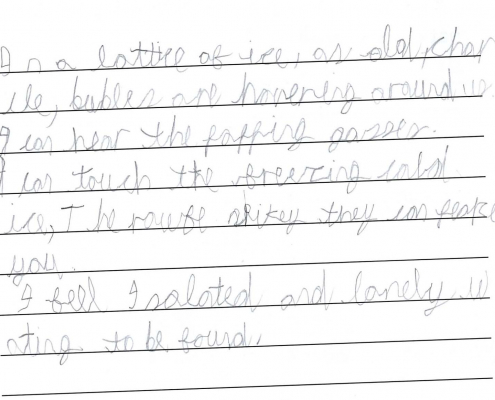 In a lattice of ice, as old, char
ile, bubles are havering around us.
I can hear the popping gasses.
I can touch the freezing cold
ice, The roufe they can
you.
I fell Isolated and lonely w
ating to be found.